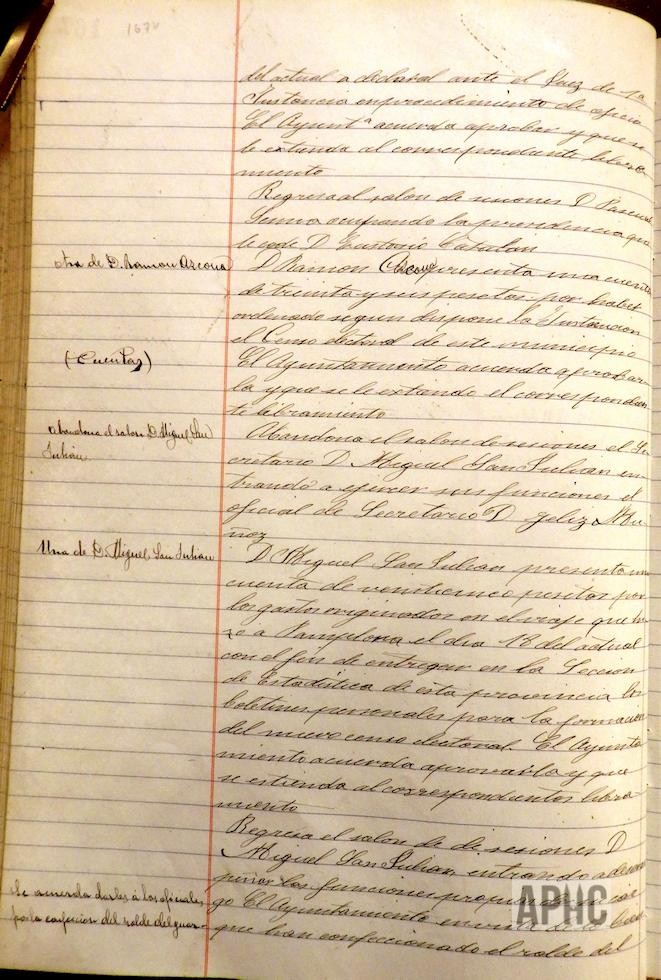 167v
del actual a declarar ante el Juez de 1a
Instancia en procedimiento de oficio
El Ayuntº acuerda aprobar y que se
le extienda al correspondiente libra
miento
Regresa al salon de sesiones D Pascual
Senna ocupando la presidencia que
le cede D Eustasio Catalan
otra de D. Ramon Azcona
D Ramon Azcona presenta una cuenta
de treinta y seis pesetas por haber
ordenado segun dispone la Instancion
el Censo electoral de este municipio
(Cuentas)
El Ayuntamiento acuerda aprobar
la y que se le extienda el correspondien
te libramiento
Abandona el salon D. Miguel San
Julian
Abandona el salon de sesiones el Se
cretario D Miguel San Julian en
trando a ejercer sus funciones el
oficial de Secretario D Feliz Mu
ñoz
Una de D. Miguel San Julian
D Miguel San Julian presenta una
cuenta de veinticinco pesetas por
los gastos originados en el viaje que hi
zo a Pamplona el dia 18 del actual
con el fin de entregar en la Seccion
de Estadistica de esta provincia los
boletines personales para la formacion
del nuevo censo electoral. El Ayunta
miento acuerda aprovarla y que
se estienda al correspondientes libra
miento
Regresa el salon de de sesiones D
Miguel San Julian entrando a desem
peñar las funciones propias de su car
go El Ayuntamiento en vista de lo bien
que han confeccionado el rolde del
Se acuerda darles á los oficiales
por la confecion del rolde del guar-
APHC